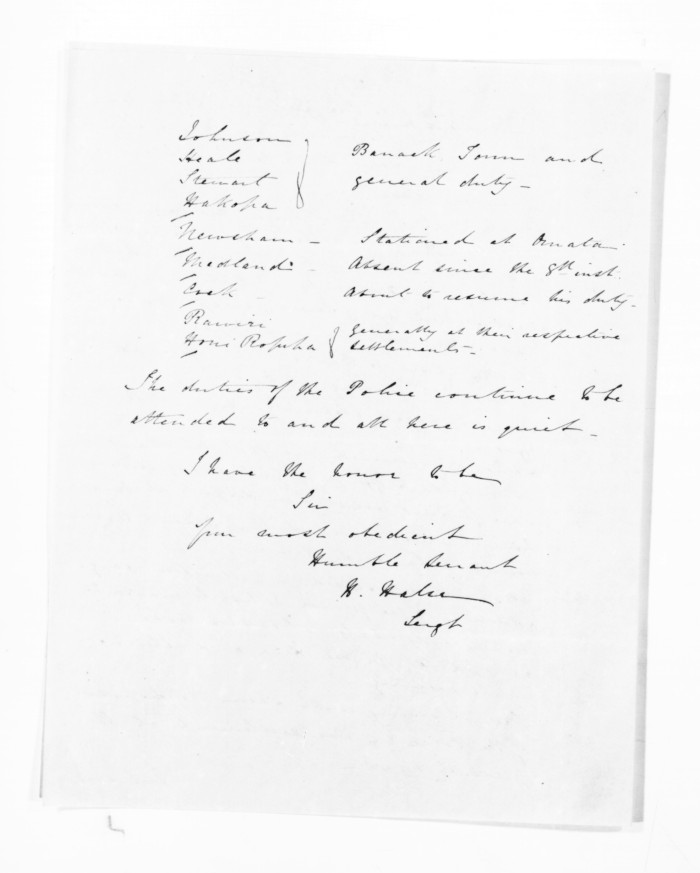 Johnson
Heale
Stewart
Hakopa
Barrack Town and
general duty -
Newsham - Stationed at Omata.
Medland - Absent since the 8th inst.
Cook - About to resume his duty -
Rawiri
Honi Ropiha
generally at their respective
settlements -
The duties of the Police continue to be
attended to and all here is quiet -
I have the honor to be
Sir
your most obedient
Humble servant
H. Halse
Sergt